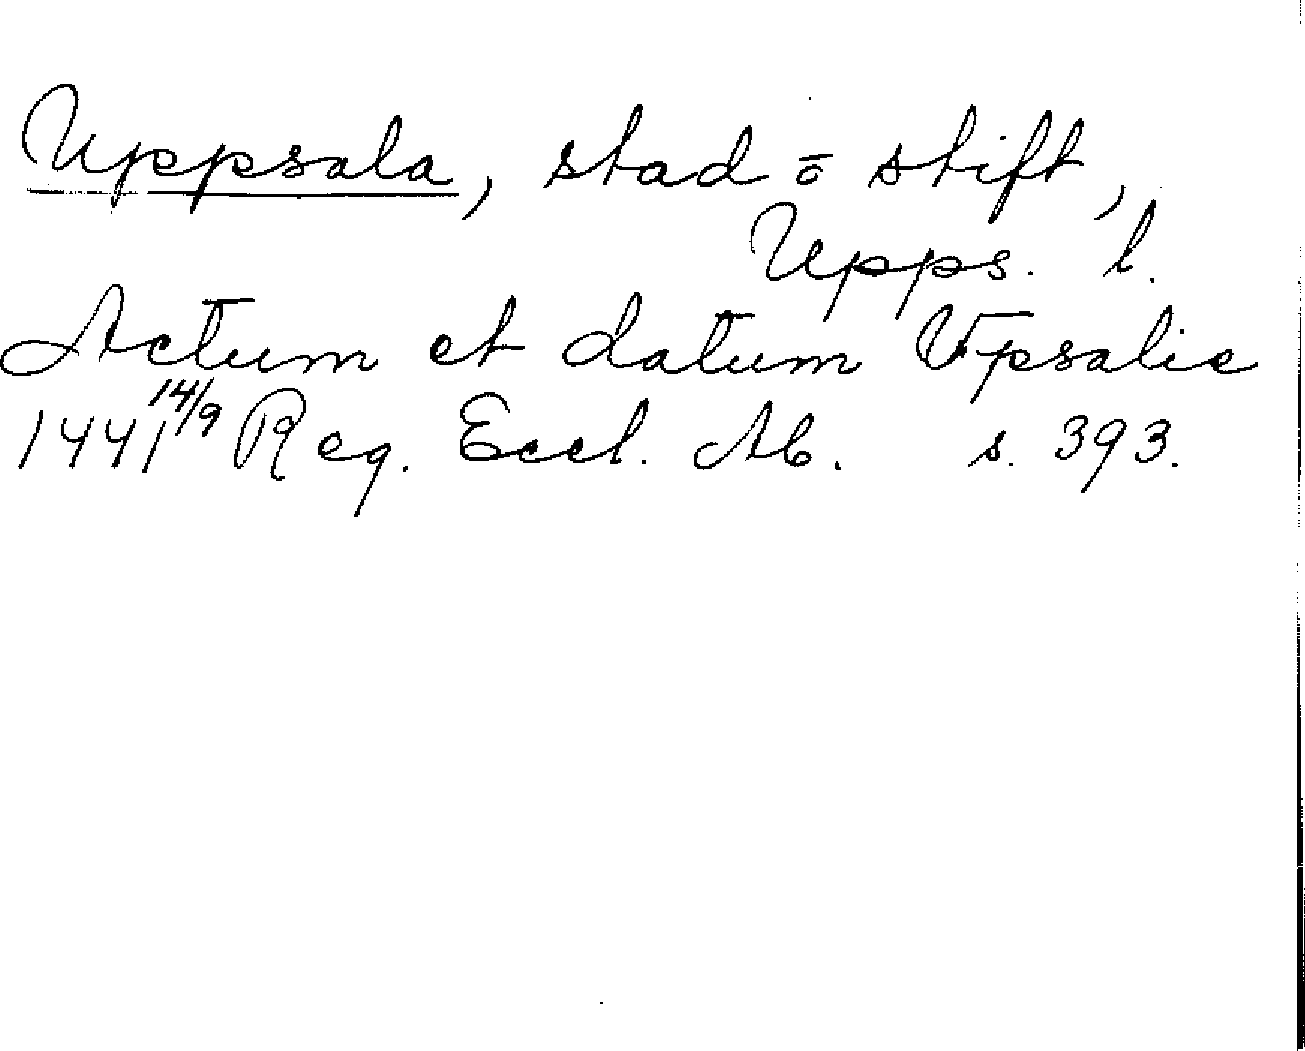 Uppsala, stad o stift,
Upps. l.
Actum et datum Vpsalie
1441 14/9 Reg. Eccl. Ab. s. 393.